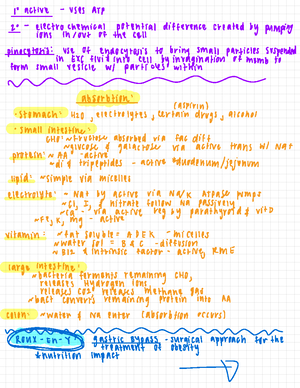 1° active - uses ATP
2° - electrochemical potential difference created by pumping
ions in/out of the cell
pinocytosis: use of endocytosis to bring small particles suspended
in EXC fluid into cell by invagination of memb to
form small vesicle w/ particles within
absorption:
(aspirin)
·stomach: H2O, electrolytes, certain drugs, alcohol
·small intestine:
CHO: ~fructose absorbed via fac diff
~glucose & galactose via active trans w/ Na+
protein: ~AA - active
~di & tripeptides - active *duodenum/jejunum
lipid: ~simple via micelles
electrolyte: ~Na+ by active via Na/K ATPase pumps
~Cl, I, & nitrate follow Na passively
~Ca - via active reg by parathyroid & vit D
~Fe, K, mg - active
vitamin: ~fat soluble = ADEK - micelles
~water sol = B & C - diffusion
~B12 & intrinsic factor - active, RME
large intestine:
~bacteria ferments remaining CHO,
releases hydrogen ions,
releases CO2, releases methane gas
~bact converts remaining protein into AA
colon: ~water & Na enter (absorption occurs)
ROUX-en-Y: gastric bypass - surgical approach for the
treatment of obesity
*nutrition impact